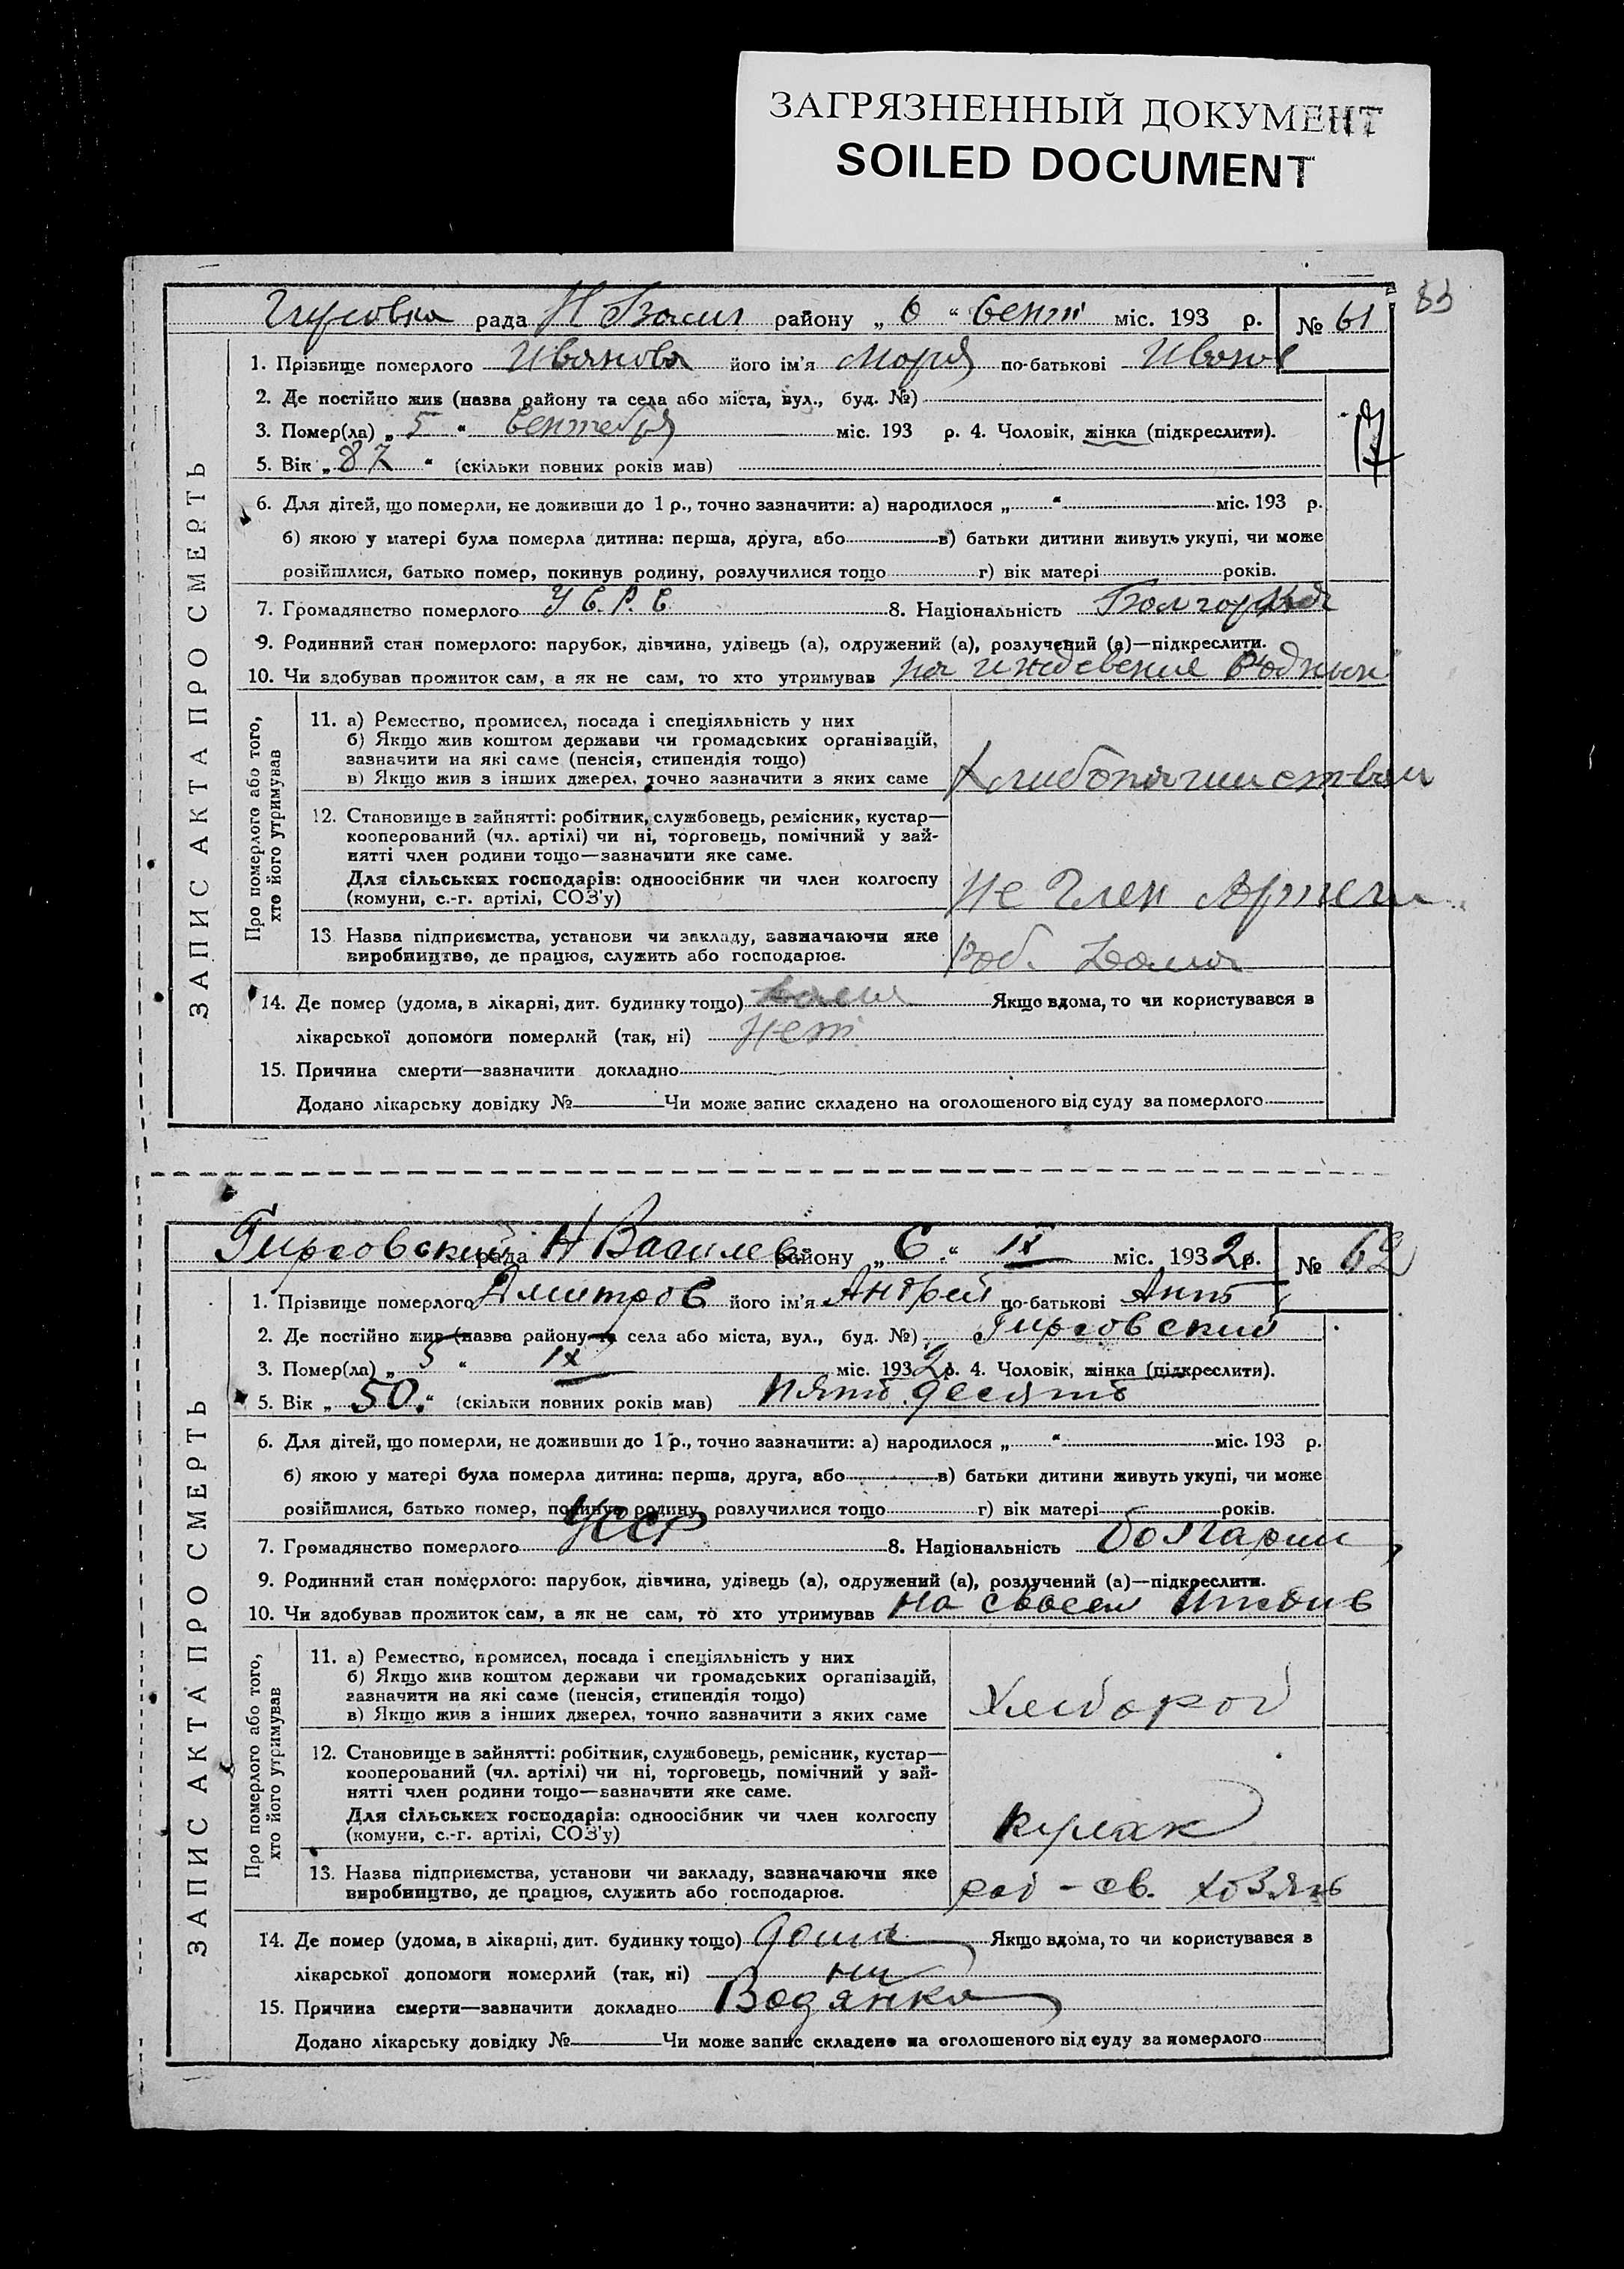 ЗАГРЯЗНЕННЫЙ ДОКУМЕНТ
SOILED DOCUMENT
83
Гирсовка рада Н Васил району „ 6 “ Сент міс. 193 р. № 61
ЗАПИС АКТА ПРО СМЕРТЬ
1. Прізвище померлого Иванова його ім'я Мория по-батькові Иванов
2. Де постійно жив (назва району та села або міста, вул., буд. №)
3. Помер(ла) „ 5 “ Сентебря міс. 193 р. 4. Чоловік, жінка (підкреслити).
5. Вік „ 87 “ (скільки повних років мав)
6. Для дітей, що померли, не доживши до 1 р., точно зазначити: а) народилося „ “ міс. 193 р.
б) якою у матері була померла дитина: перша, друга, або в) батьки дитини живуть укупі, чи може
розійшлися, батько помер, покинув родину, розлучилися тощо г) вік матері років.
7. Громадянство померлого У С. Р. С. 8. Національність
9. Родинний стан померлого: парубок, дівчина, удівець (а), одружений (а), розлучений (а)—підкреслити.
10. Чи здобував прожиток сам, а як не сам, то хто утримував на иждевение
Про померлого або того, хто його утримував
11. а) Ремество, промисел, посада і спеціяльність у них
б) Якщо жив коштом держави чи громадських організацій,
зазначити на які саме (пенсія, стипендія тощо)
в) Якщо жив з інших джерел, точно зазначити з яких саме
12. Становище в зайнятті: робітник, службовець, ремісник, кустар—
кооперований (чл. артілі) чи ні, торговець, помічний у зай-
нятті член родини тощо—зазначити яке саме.
Для сільських господарів: одноосібник чи член колгоспу
(комуни, с.-г. артілі, СОЗ'у) Не Член Артели
13 Назва підприємства, установи чи закладу, зазначаючи яке
виробництво, де працює, служить або господарює. Роб. Дома
14. Де помер (удома, в лікарні, дит. будинку тощо) Дома Якщо вдома, то чи користувався з
лікарської допомоги померлий (так, ні) Нет
15. Причина смерти—зазначити докладно
Додано лікарську довідку № Чи може запис складено на оголошеного від суду за померлого
Гирсовский рада Н Василев району „ 6 “ IX міс. 1932 р. № 62
ЗАПИС АКТА ПРО СМЕРТЬ
1. Прізвище померлого Дмитров його ім'я Андрей по-батькові Ант
2. Де постійно жив (назва району та села або міста, вул., буд. №) Гирсовский
3. Помер(ла) „ 5 “ IX міс. 1932 р. 4. Чоловік, жінка (підкреслити).
5. Вік „ 50. “ (скільки повних років мав) Пять десять
6. Для дітей, що померли, не доживши до 1 р., точно зазначити: а) народилося „ “ міс. 193 р.
б) якою у матері була померла дитина: перша, друга, або в) батьки дитини живуть укупі, чи може
розійшлися, батько помер, покинув родину, розлучилися тощо г) вік матері років.
7. Громадянство померлого УССР 8. Національність болгарин
9. Родинний стан померлого: парубок, дівчина, удівець (а), одружений (а), розлучений (а)—підкреслити.
10. Чи здобував прожиток сам, а як не сам, то хто утримував на своем
Про померлого або того, хто його утримував
11. а) Ремество, промисел, посада і спеціяльність у них
б) Якщо жив коштом держави чи громадських організацій,
зазначити на які саме (пенсія, стипендія тощо)
в) Якщо жив з інших джерел, точно зазначити з яких саме Хлебороб
12. Становище в зайнятті: робітник, службовець, ремісник, кустар—
кооперований (чл. артілі) чи ні, торговець, помічний у зай-
нятті член родини тощо—зазначити яке саме.
Для сільських господарів: одноосібник чи член колгоспу
(комуни, с.-г. артілі, СОЗ'у) кулак
13. Назва підприємства, установи чи закладу, зазначаючи яке
виробництво, де працює, служить або господарює. роб - св. хозяй
14. Де помер (удома, в лікарні, дит. будинку тощо) дома Якщо вдома, то чи користувався з
лікарської допомоги померлий (так, ні) ни
15. Причина смерти—зазначити докладно Водянка
Додано лікарську довідку № Чи може запис складено на оголошеного від суду за померлого